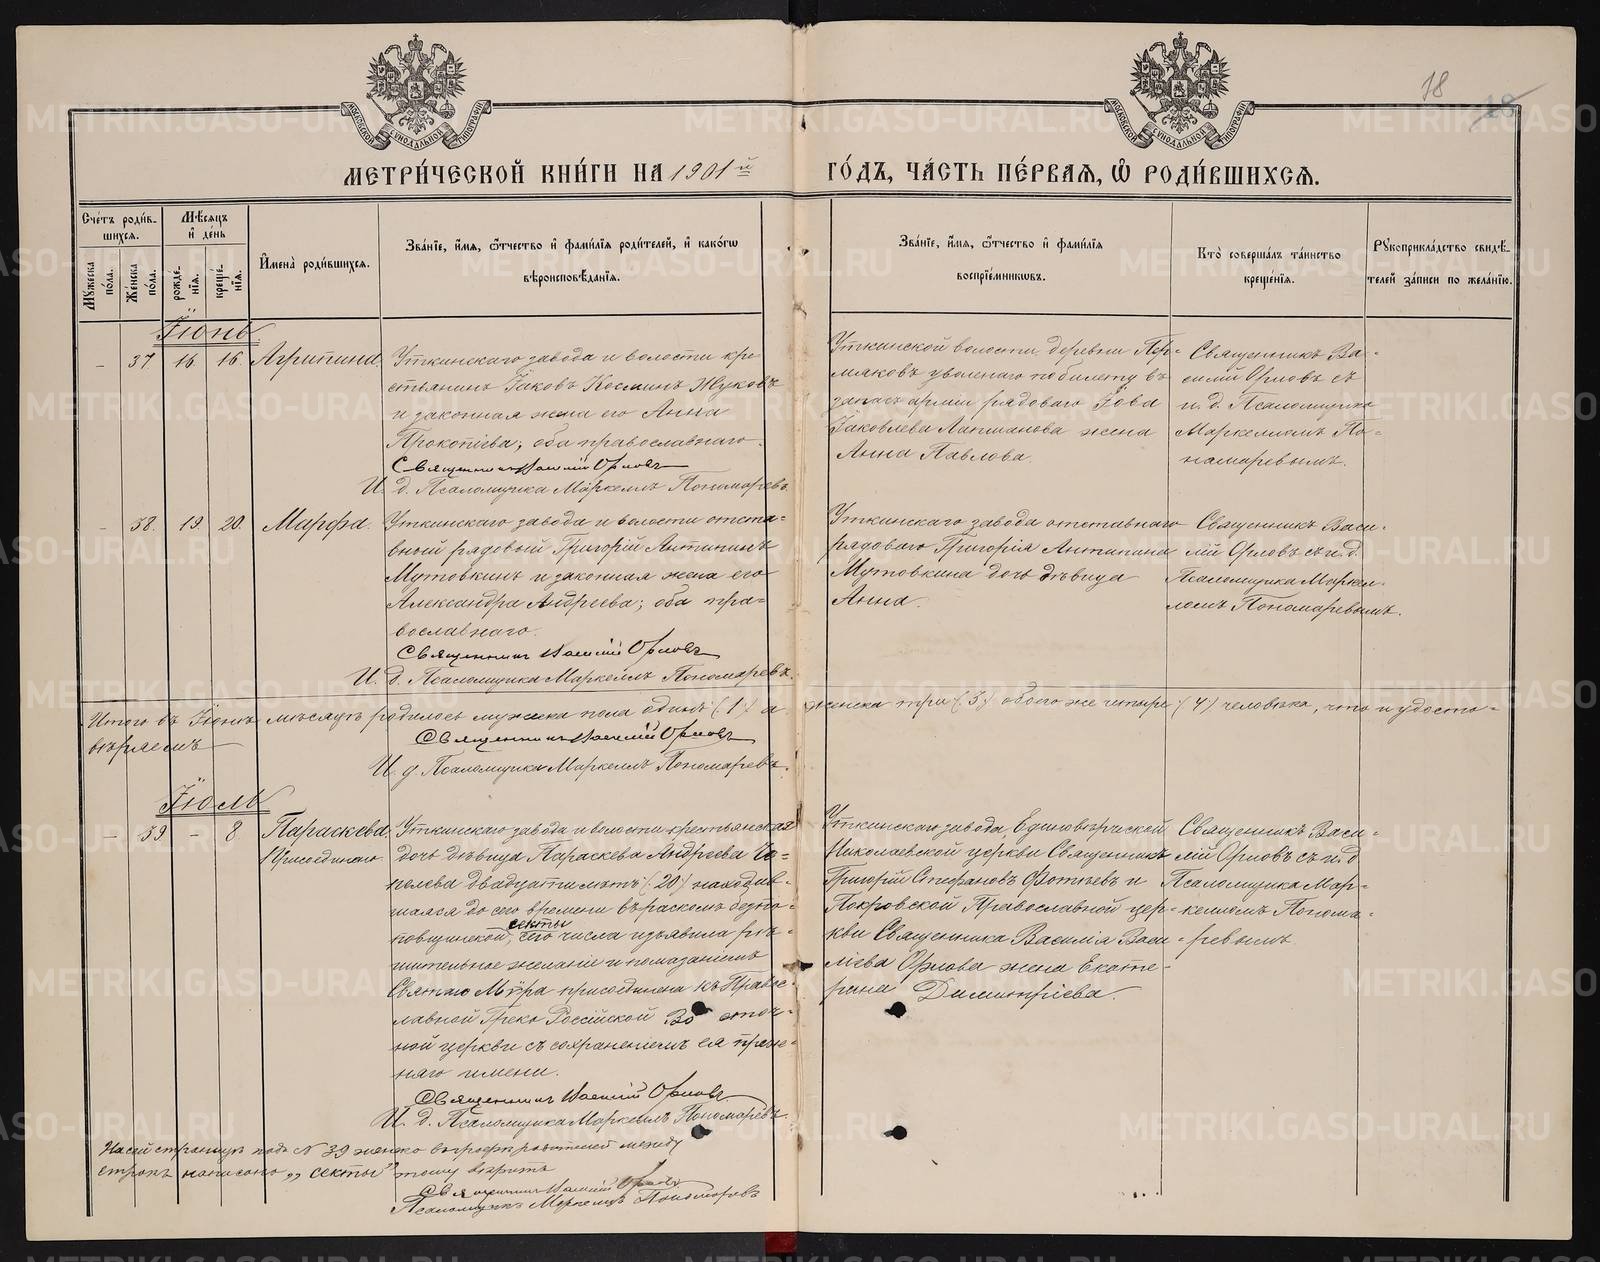 18
МЕТРИ́ЧЕСКОЙ КНИ́ГИ НА 1901й ГО́ДЪ, ЧА́СТЬ ПЕ́РВАЯ, Ѡ РОДИ́ВШИХСЯ.
Сче́тъ роди́в-
шихся.
Му́жеска по́ла.
Же́нска по́ла.
Мѣ́сяцъ и де́нь
рожде́-нія.
креще́-нія.
И҆мена̀ роди́вшихся.
Зва́ніе, и҆́мя, ѻ҆́тчество и҆ фами́лія роди́телей, и҆ како́гѡ
вѣроисповѣ́данія.
Зва́ніе, и҆́мя, ѻ҆́тчество и҆ фами́лія
воспріе́мниковъ.
Кто̀ соверша́лъ та́инство
креще́нія.
Рꙋкоприкла́дство свидѣ́-
телей за́писи по жела́нію.
Іюнь
– 37 16. 16. Агрипина.
Уткинскаго завода и волости кре
стьянинъ Іаковъ Космин Жуковъ
и законная жена его Анна
Прокопіева; оба православнаго.
Священникъ Василій Орловъ
И. д. Псаломщика Маркеллъ Пономаревъ.
Уткинской волости деревни Пер-
мяковъ уволенаго по билету въ
запасъ арміи рядоваго Іова
Іаковлева Лапманова жена
Анна Павлова.
Священникъ Ва-
силій Орловъ съ
и. д. Псаломщика
Маркелломъ По-
намаревымъ.
– 38. 19. 20. Марфа.
Уткинскаго завода и волости отста-
вный рядовой Григорій Антипинъ
Мутовкинъ и законная жена его
Александра Андреева; оба пра-
вославнаго.
Священникъ Василій Орловъ
И. д. Псаломщика Маркеллъ Пономаревъ.
Уткинскаго завода отставнаго
рядоваго Григорія Антипина
Мутовкина дочь дѣвица
Анна.
Священникъ Васи-
лій Орловъ съ и. д.
Псаломщика Маркел-
ломъ Пономаревымъ.
Итого въ Іюнѣ мѣсяцѣ родилось мужска пола одинъ (1) а женска три (3) обоего же четыре (4) человѣка, что и удосто-
вѣряемъ
Священникъ Василій Орловъ
И. д. Псаломщика Маркеллъ Пономаревъ.
Іюль
– 39 – 8 Параскева
Присоединено
Уткинскаго завода и волости крестьянская
дочь дѣвица Параскева Андреева
двадцати лѣтъ (20) находив-
шаяся до сего времени въ расколѣ безпо-
повщинской, секты
сего числа изъявила рѣ-
шительное желаніе и помазаніемъ
Святаго Мѵра присоединена къ Право-
славной Греко Россійской Восточ-
ной церкви съ сохраненіемъ ея преж-
няго имени.
Священникъ Василій Орловъ
И. д. Псаломщика Маркеллъ Пономаревъ.
Уткинскаго завода, Единовѣрческой
Николаевской церкви Священникъ
Григорій Стефановъ Фотіевъ и
Покровской Православной цер-
кви Священника Василія Васи-
ліева Орлова жена Екате-
рина Димитріева.
Священникъ Васи-
лій Орловъ съ и. д.
Псаломщика Мар-
келломъ Понома-
ревымъ.
На сей страницѣ подъ № 39 женско въ графѣ родителей между
строкъ написано „секты“ тому вѣрить
Священникъ Василій Орловъ
Псаломщикъ Маркеллъ Пономаревъ
METRIKI.GASO-URAL.RU